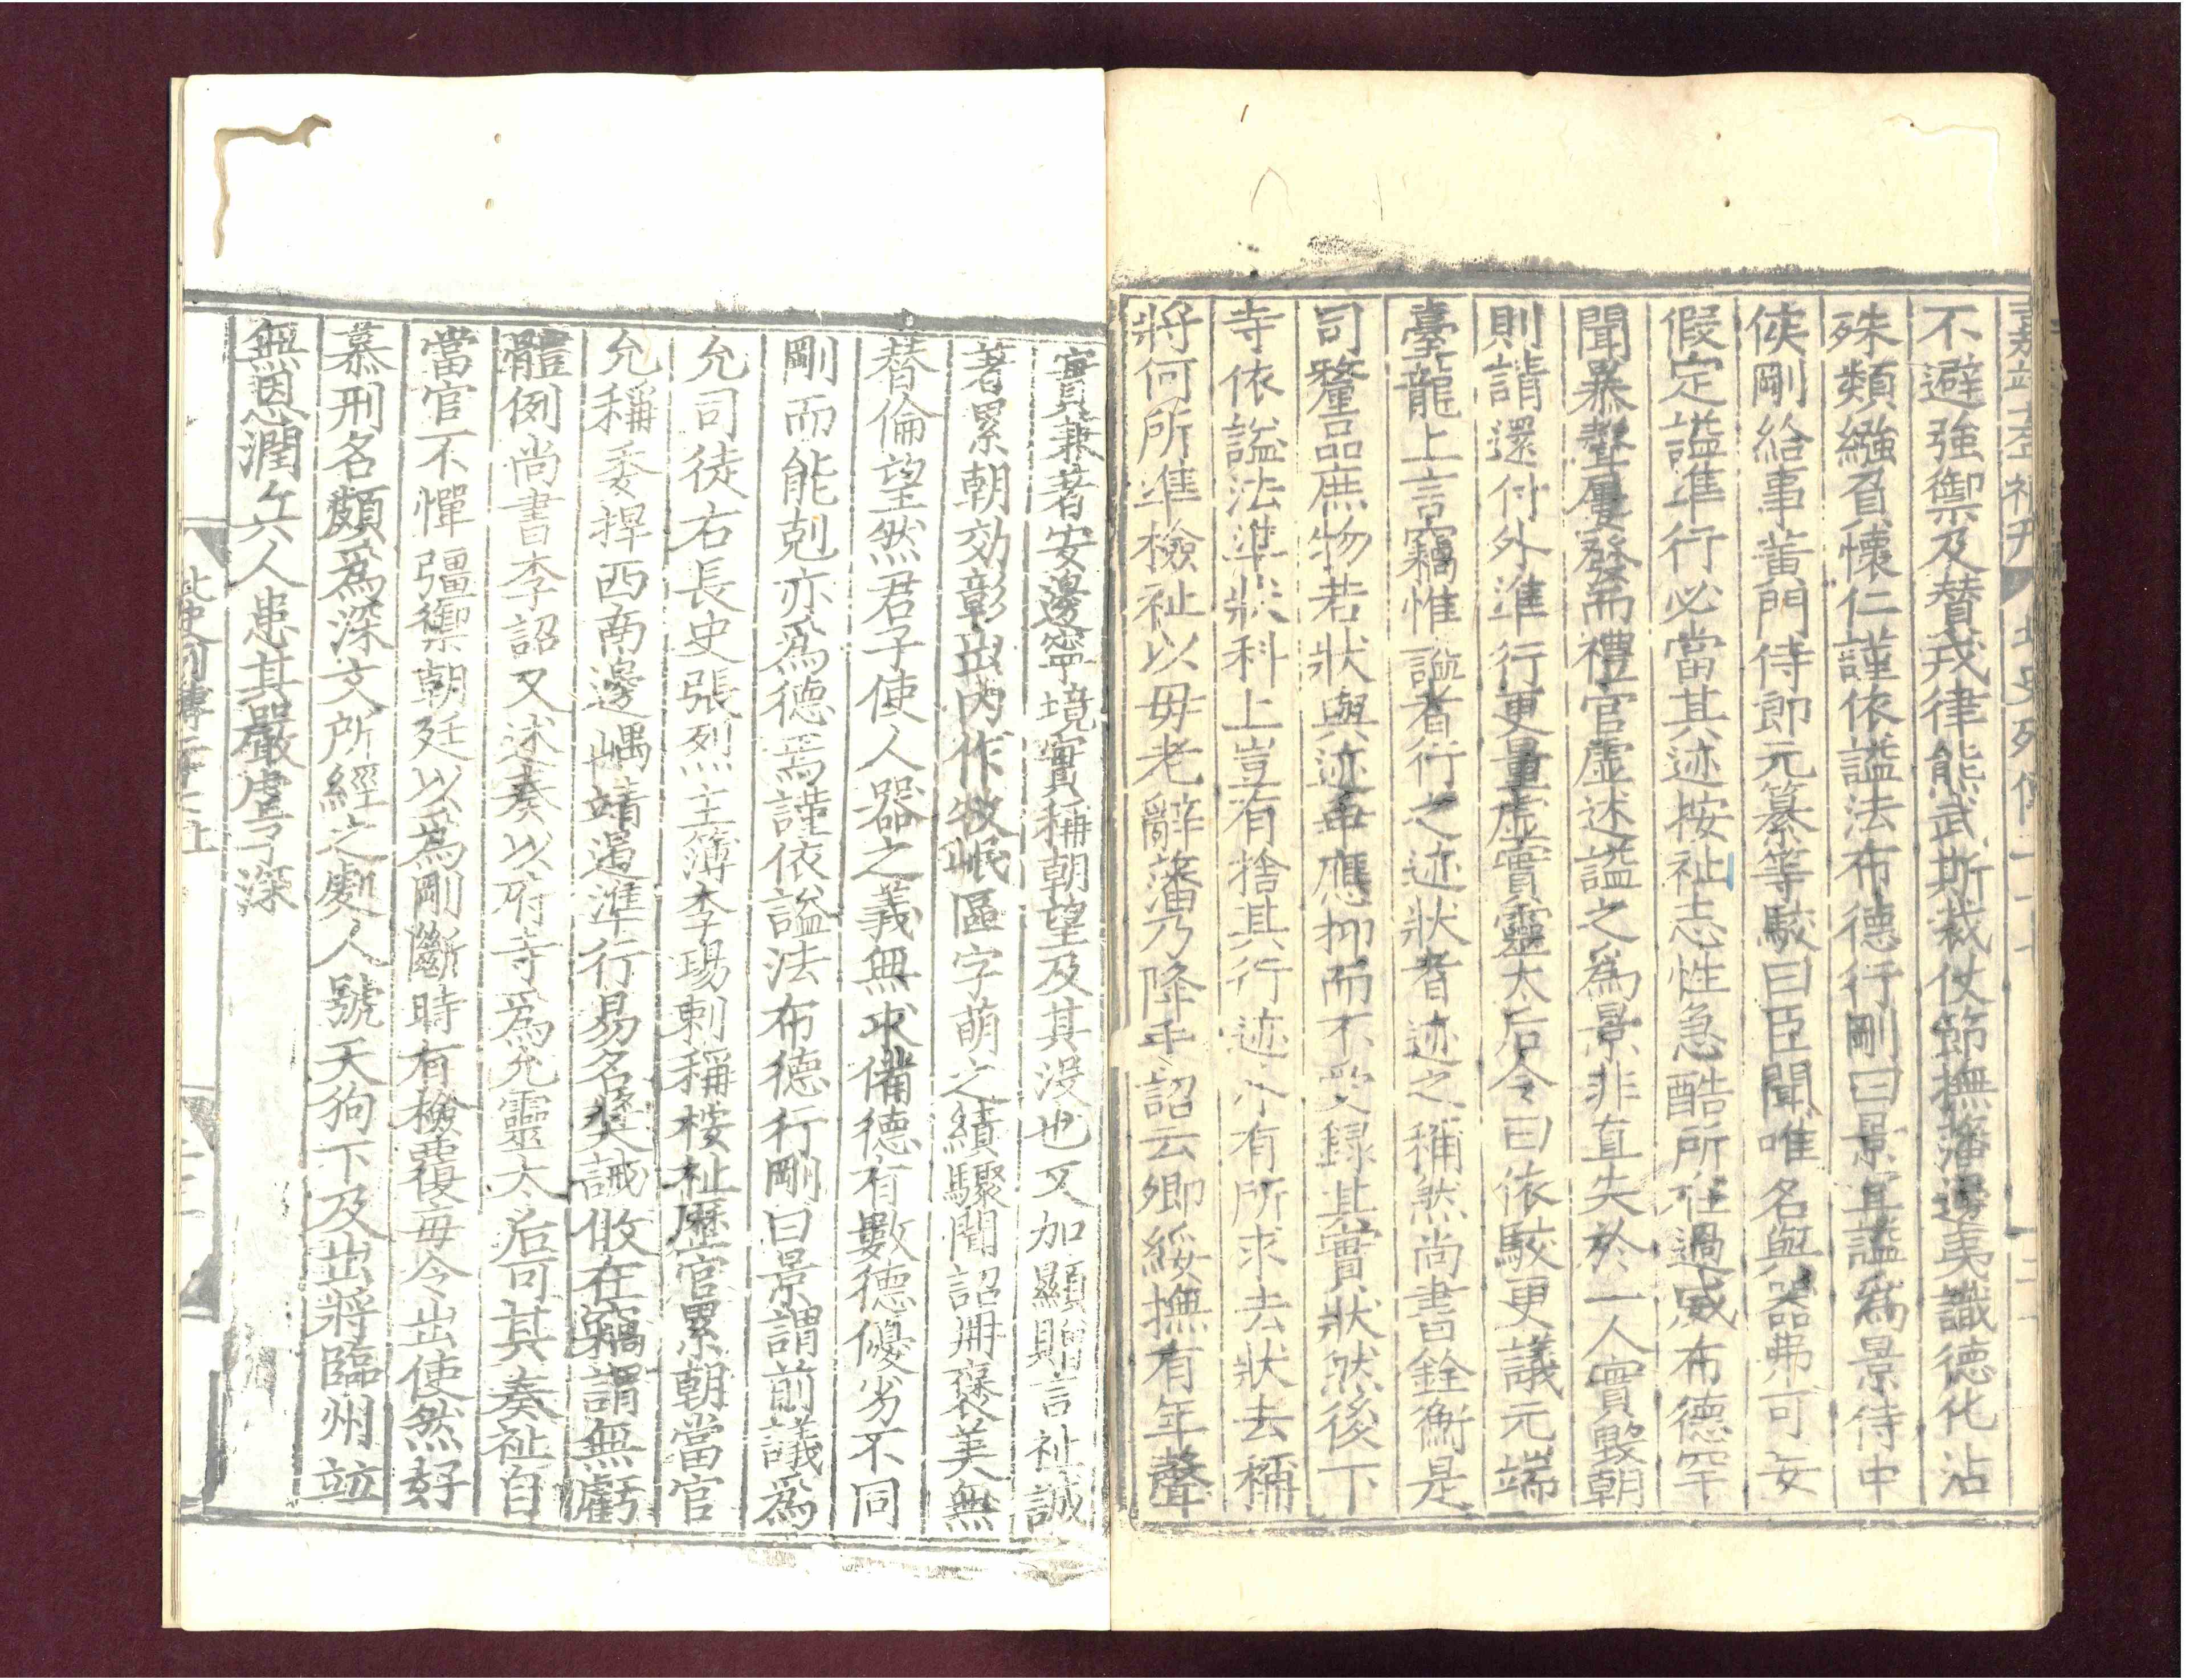 不避強禦及贊戎律熊武斯裁仗節撫藩邊夷識德化沾
殊類繦負懷仁謹依謚法布德行剛曰景宜謚爲景侍中
侯剛給事黃門侍郎元纂等駮曰臣聞唯名與器弗可妄
假定謚準行必當其迹按祉志性急酷所在過威布德罕
聞暴聲屢發而禮官虛述謚之爲景非直失於一人實毀朝
則請還付外準行更量虛實靈太后令曰依駮更議元端
臺龍上言竊惟謚者行之迹狀者迹之稱然尚書銓衡是
司釐品庶物若狀與迹乖應抑而不受錄其實狀然後下
寺依謚法準狀科上豈有捨其行迹外有所求去狀去稱
將何所準檢祉以毋老辭藩乃降手詔云卿綏撫有年聲
實兼著安邊寧境實稱朝望及其沒也又加顯贈言祉誠
著累朝効彰出內作牧岷區字萌之績驟聞詔冊襃美無
替倫望然君子使人器之義無求備德有數德優劣不同
剛而能剋亦爲德焉謹依謚法布德行剛曰景謂前議爲
允司徒右長史張烈主簿李瑒刺稱按祉歷官累朝當官
允稱委捍西南邊嵎靖遏準行易名奬誡攸在竊謂無虧
體例尚書李詔又述奏以府寺爲允靈太后可其奏祉自
當官不憚彊禦朝廷以爲剛斷時有檢覆每令出使然好
慕刑名頗爲深文所經之處人號天狗下及出將臨州竝
無恩潤公人患其嚴虐子深
北史列傳二十七上